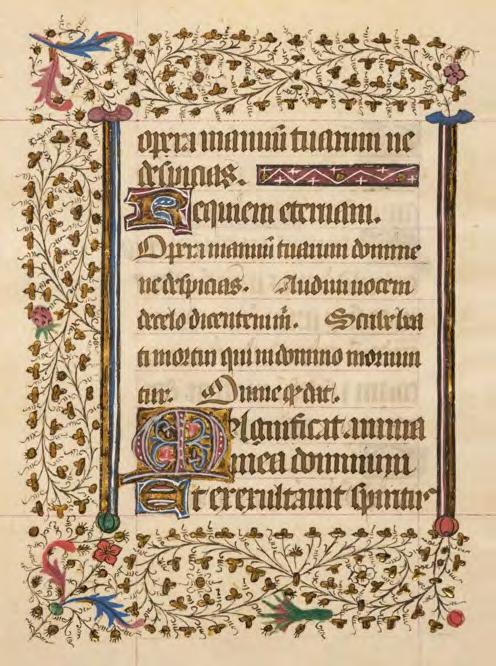 opera manuũ tuarum ne
despicias.
Requiem eternam.
Opera manuũ tuarum domine
ne despicias. Audiui uocem
de celo dicentem m̃. Scribe bea
ti mortui qui in domino moriun
tur. Omne qđ dat.
Magnificat anima
mea dominum
Et exexultauit spiritus